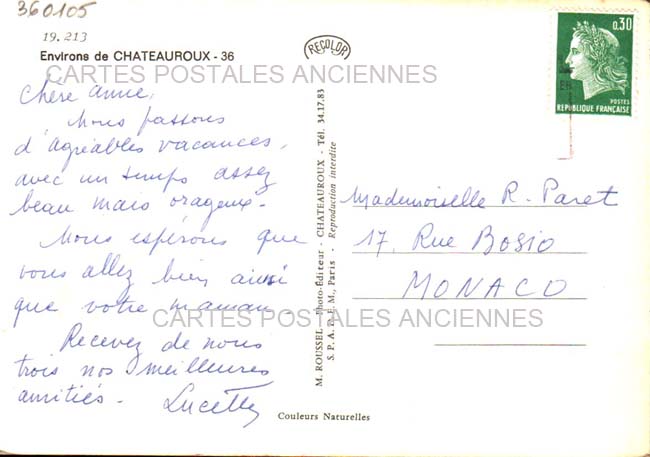 360105
19.213
Environs de CHATEAUROUX - 36
CARTES POSTALES ANCIENNES
Chère Annie,
Nous passons
d'agréables vacances,
avec un temps assez
beau mais orageux.
Nous espérons que
vous allez bien ainsi
que votre maman.
Recevez de nous
trois nos meilleures
amitiés. Lucette
RECOLOR
M. ROUSSEL, Photo-Éditeur - CHATEAUROUX - Tél. 34.17.83
S.P.A.D.E.M., Paris - Reproduction interdite
Couleurs Naturelles
0,30
POSTES
REPUBLIQUE FRANÇAISE
Mademoiselle R. Paret
17, Rue Bosio
MONACO
CARTES POSTALES ANCIENNES